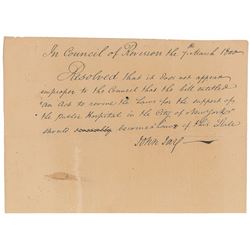 In Council of Revision the 7th March 1800
Resolved that it does not appear
improper to the Council that the bill entitled
"An Act to revive the Laws for the support of
the public Hospital in the City of New York"
should become a Law of this State
John Jay